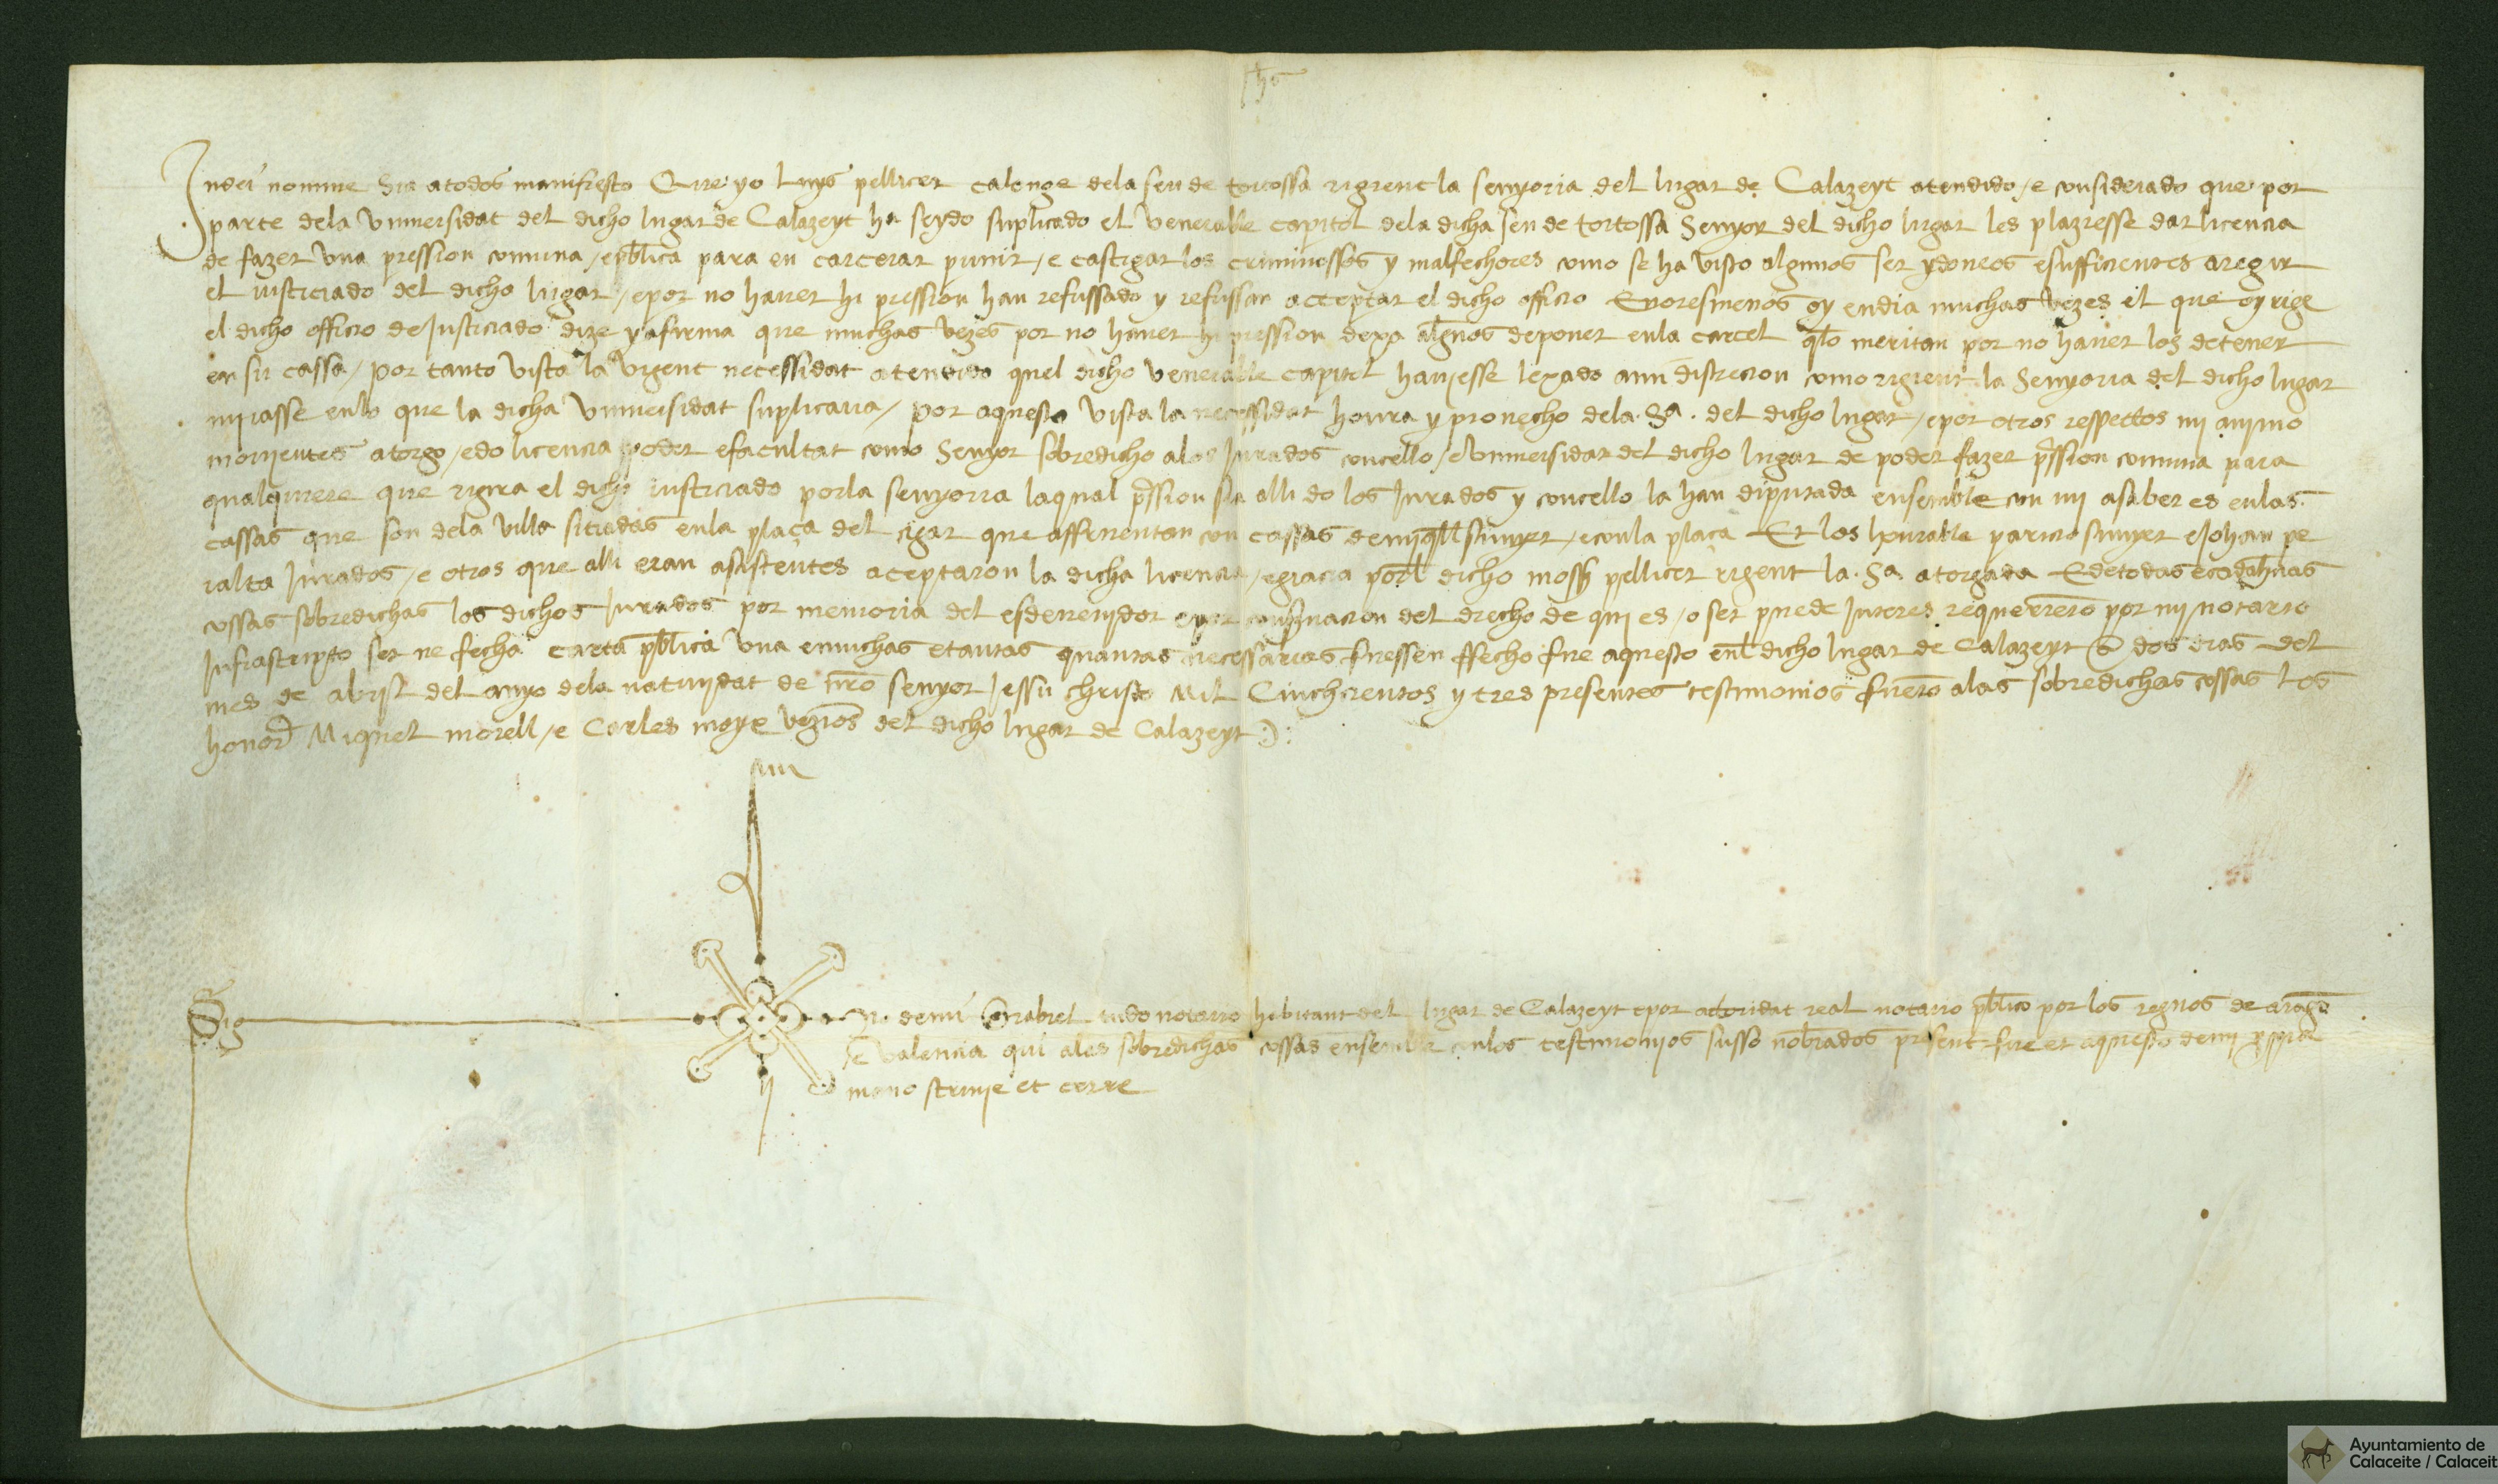 Jhs
In dei nomine Sia a todos manifiesto Que yo Luys pellicer calonge dela seu de tortossa rigient la senyoria del lugar de Calazeyt atendido / e considerado que por
parte dela Universidat del dicho lugar de Calazeyt ha seydo suplicado el venerable capitol dela dicha seu de tortossa Senyor del dicho lugar les plaziesse dar licencia
de fazer una pression comuna / e publica para en carcerar punir / e castigar los criminossos y malfechores como se ha visto algunos ser ydoneos e sufficientes a regir
el iusticiado del dicho lugar / e por no haver hi pression han refussado y refussan acceptar el dicho officio E noresmenos oy endia muchas vezes el que oy rige
el dicho officio de Justiciado dize y afirma que muchas vezes por no haver hi pression dexa algunos deponer enla carcel qlo meritan por no haver los detener
en su cassa / por tanto vista la urgent necessidat atendido quel dicho venerable capitol haviesse lexado a mi discrecion como rigient la Senyoria del dicho lugar
mirasse enlo que la dicha Universidat suplicava / por aquesto vista la necessidat honra y provecho dela Sa. del dicho lugar / e por otros respectos mi animo
movientes atorgo / e do licencia poder e facultat como Senyor sobredicho alos Jurados concello / e Universidat del dicho lugar de poder fazer pssion comuna para
qualquiere que rigira el dicho iusticiado porla senyoria laqual pssion sia alli do los Jurados y concello la han diputada ensemble con mi asaber es enlas
cassas que son dela villa sitiadas enla plaça del lugar que affruentan con cassas de miquell sunyer / e conla plaça Et los honrable paricio sunyer e Johan pe
ralta Jurados / e otros que alli eran asistentes aceptaron la dicha licencia / e gracia porl dicho mossen pellicer rigent la Sa. atorgada E de todas e cada unas
cossas sobredichas los dichos Jurados por memoria del esdevenidor e por conservacion del drecho de qui es / o ser puede Interes requerieron por mi notario
Infrascripto ser ne fecha carta publica una e muchas e tantas quantas necessarias fuessen ffecho fue aquesto enl dicho lugar de Calazeyt a dos dias del
mes de abril del anyo dela natividat de nro senyor Jessu christo Mil Cinchcientos y tres presentes testimonios fueron alas sobredichas cossas Los
honord Miquel morell / e Carles moye vezinos del dicho lugar de Calazeyt
Sig no de mi Grabiel notario habitant del lugar de Calazeyt e por actoridat real notario publico por los regnos de aragon
e valencia qui alas sobredichas cossas ensemble conlos testimonios susso nobrados present fue et aquesto de mi propia
mano scrivie et cerre
Ayuntamiento de
Calaceite / Calaceit